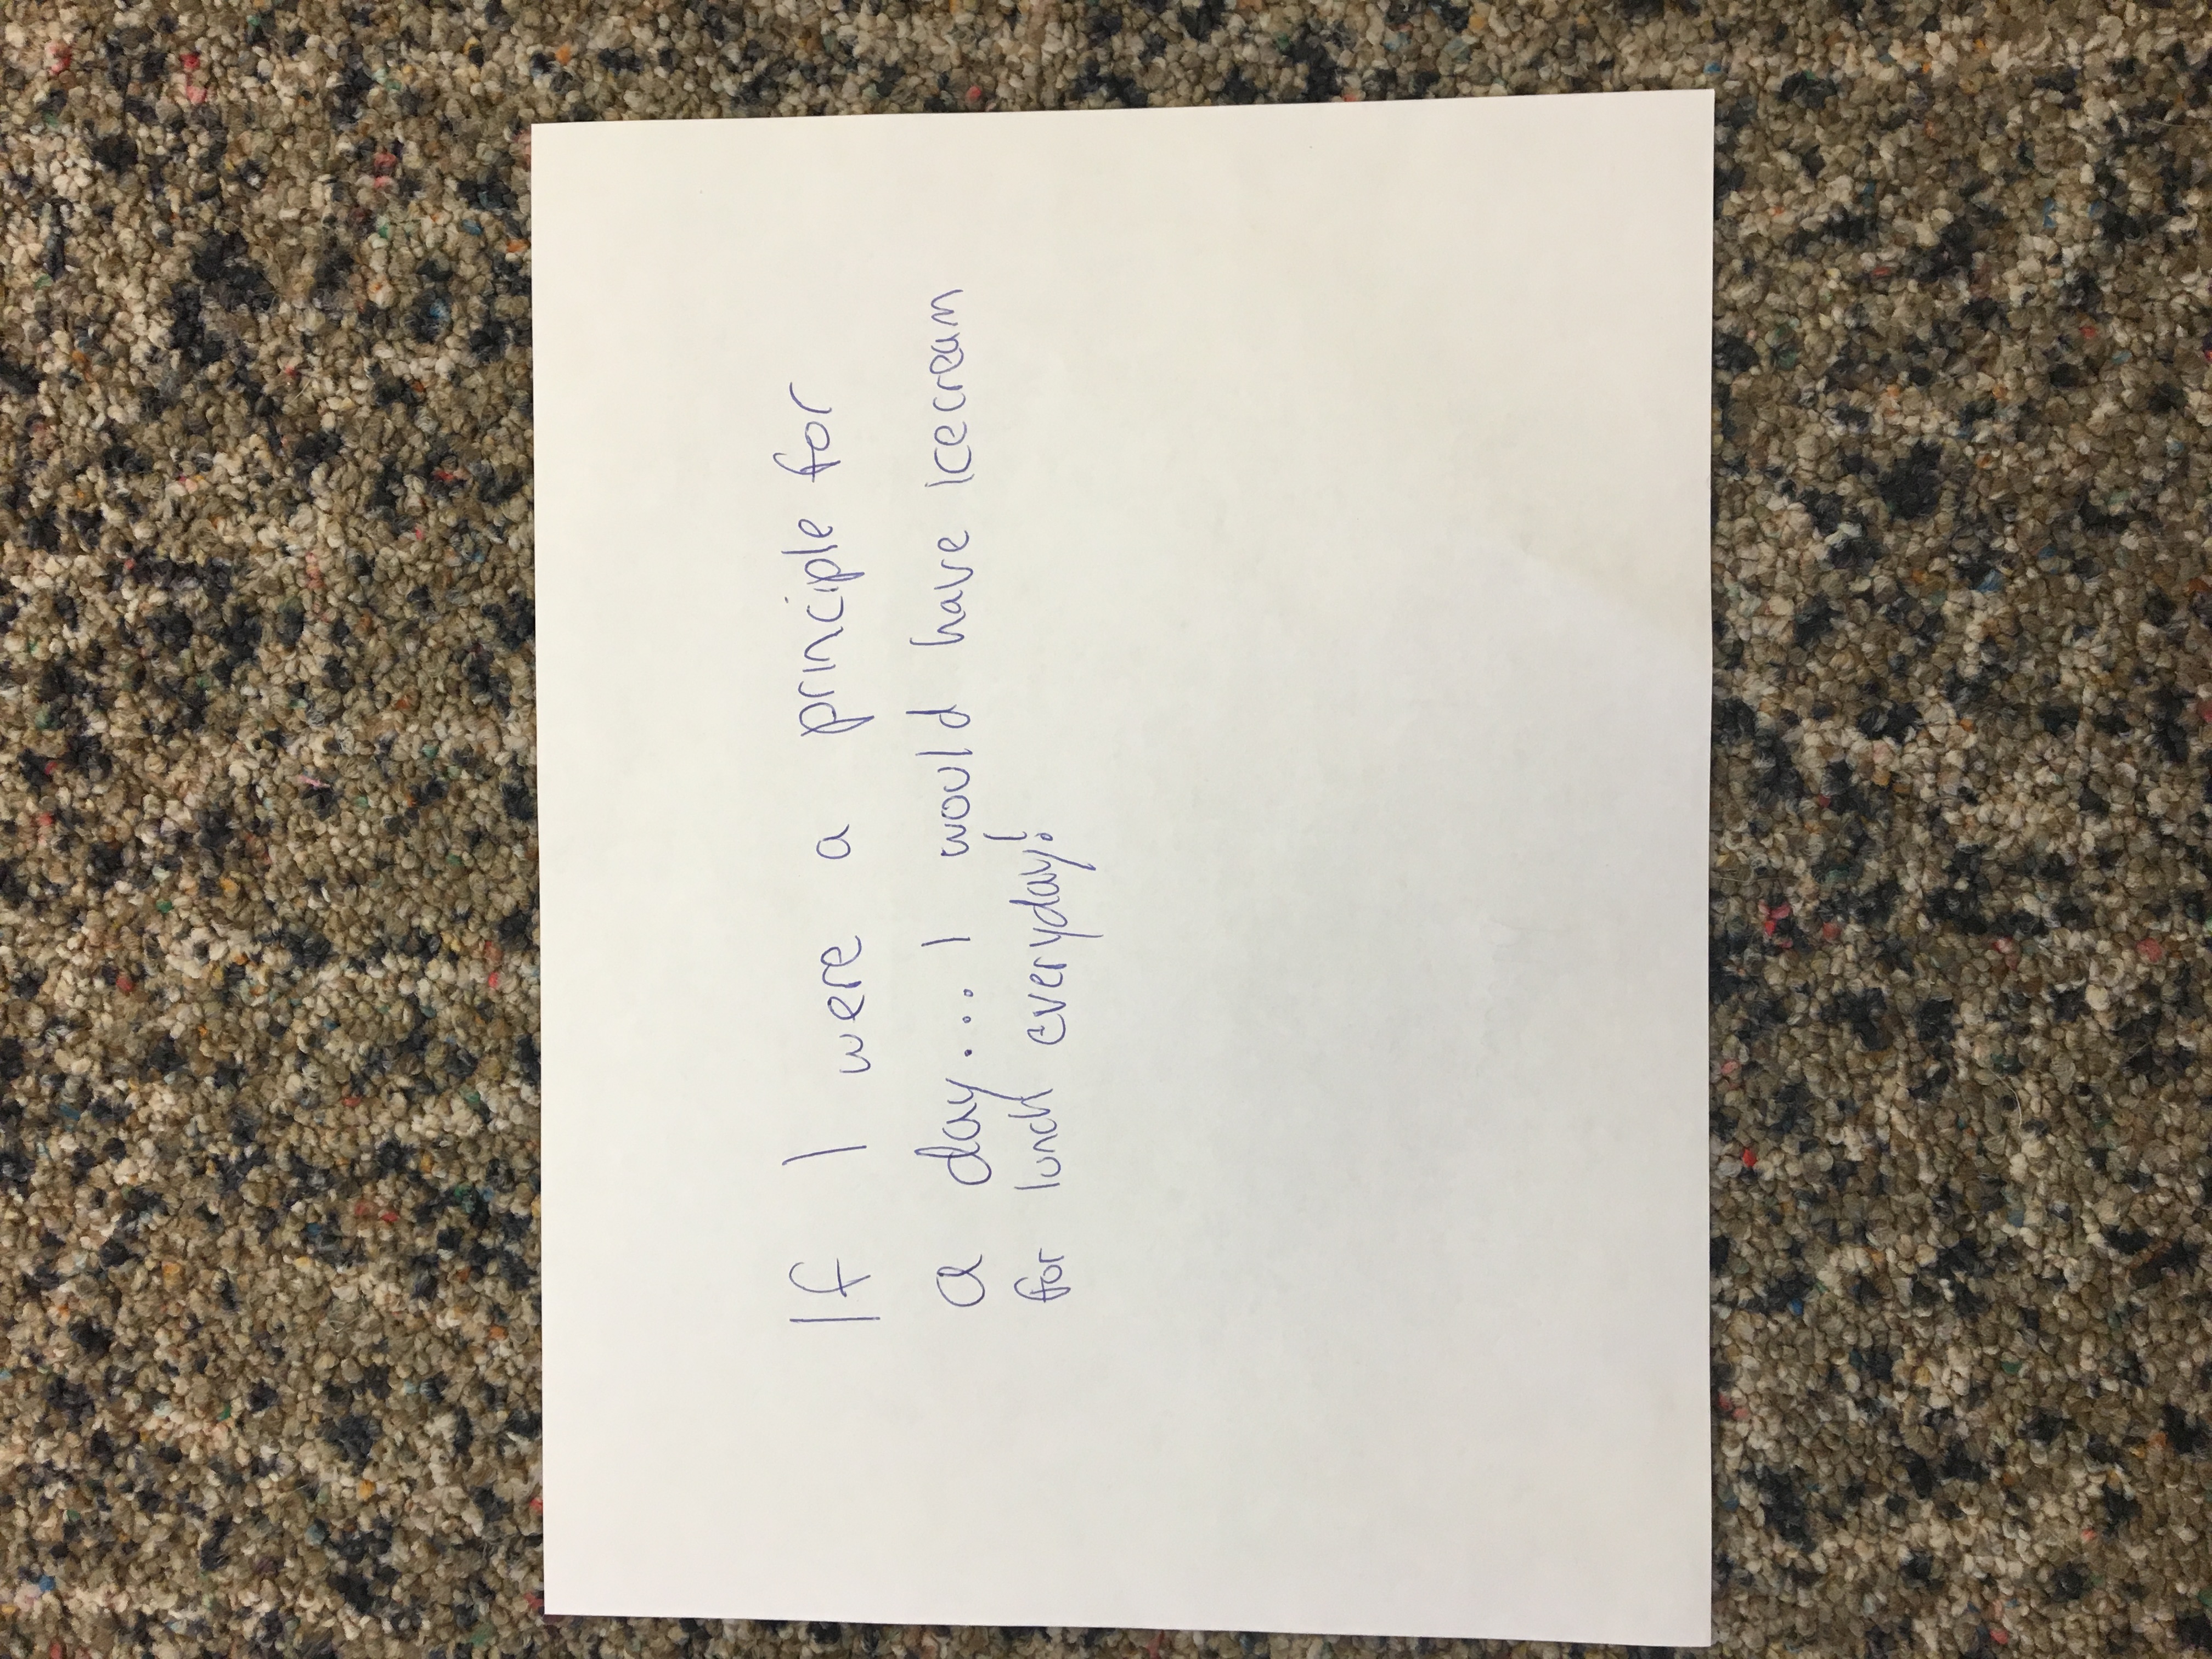 If I were a principle for
a day... I would have icecream
for lunch everyday!